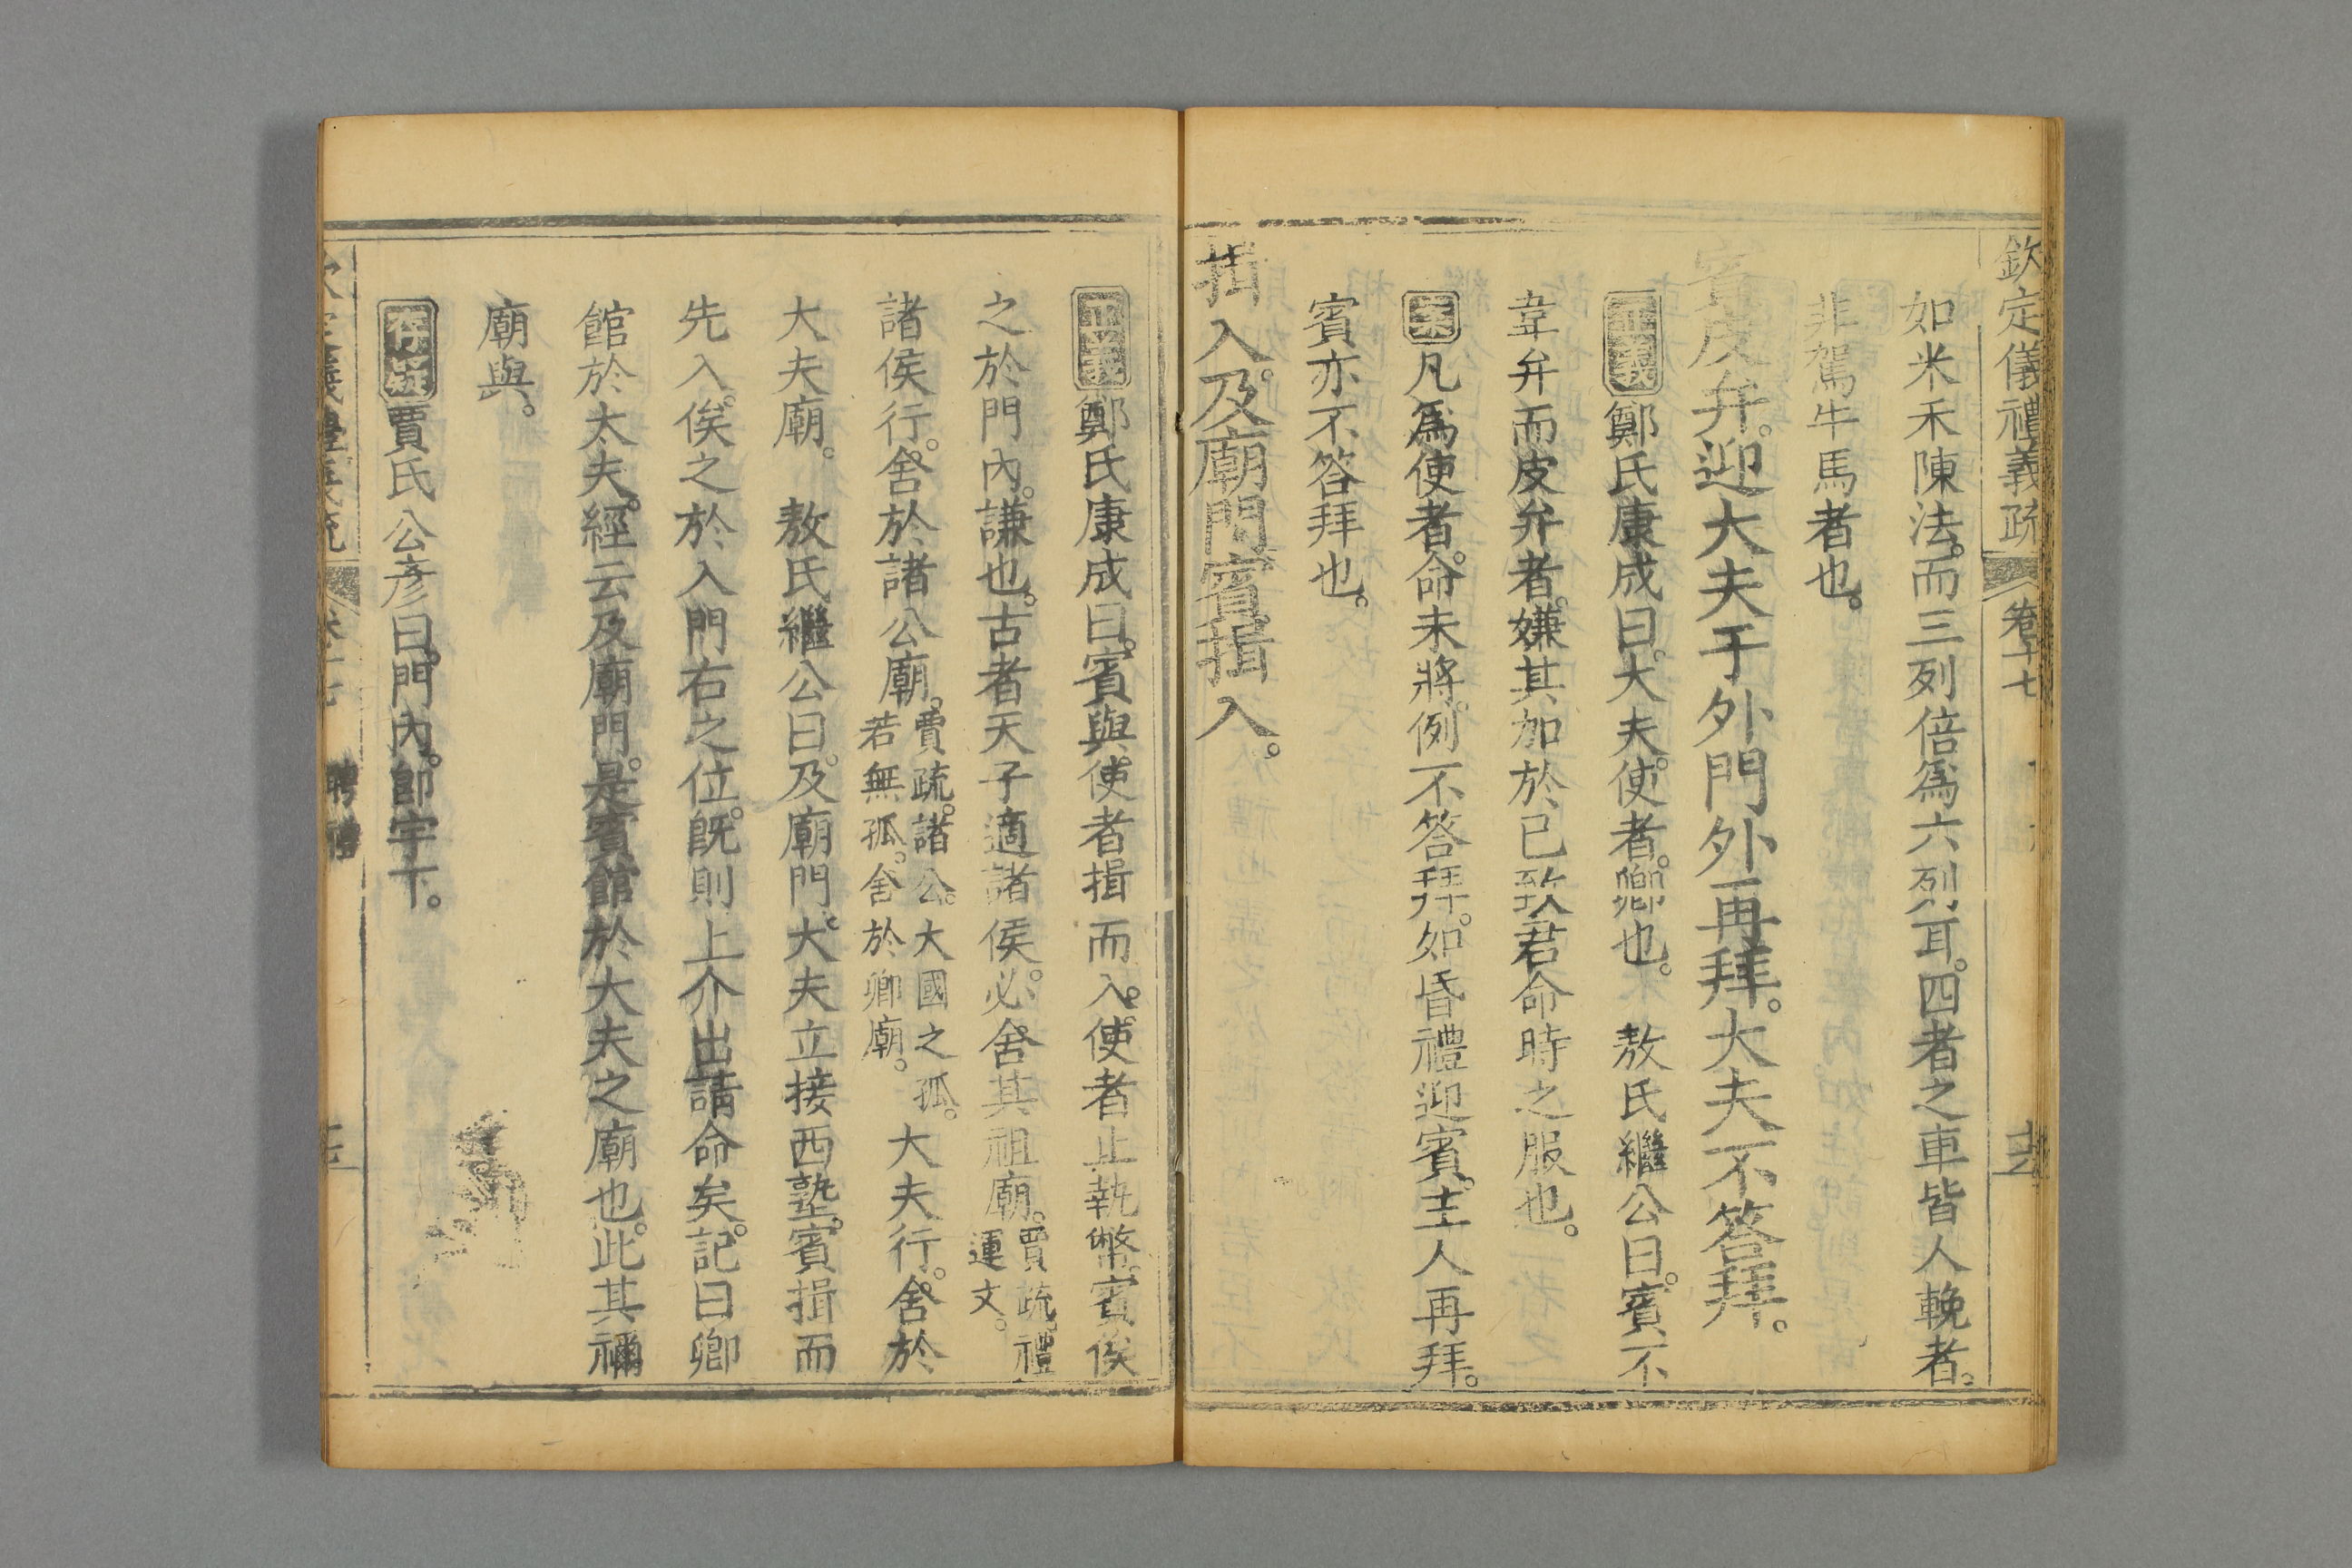 欽定儀禮義疏 卷十七
如米禾陳法。而三列倍爲六列耳。四者之車皆人輓者。
非駕牛馬者也。
賓皮弁。迎大夫于外門外再拜。大夫不答拜。
正義鄭氏康成曰。大夫。使者。卿也。 敖氏繼公曰。賓不
韋弁而皮弁者。嫌其加於已致君命時之服也。
案凡爲使者。命未將。例不答拜。如昏禮迎賓。主人再拜。
賓亦不答拜也。
揖入。及廟門。賓揖入。
正義鄭氏康成曰。賓與使者揖而入。使者止執幣。賓俟
之於門內。謙也。古者天子適諸侯。必舍其祖廟。賈疏。禮
運文。
諸侯行。舍於諸公廟。賈疏。諸公。大國之孤。
若無孤。舍於卿廟。
大夫行。舍於
大夫廟。 敖氏繼公曰。及廟門。大夫立接西塾。賓揖而
先入。俟之於入門右之位。旣則上介出請命矣。記曰卿
館於大夫。經云及廟門。是賓館於大夫之廟也。此其禰
廟與。
存疑賈氏公彥曰。門內。卽宇下。
聘禮